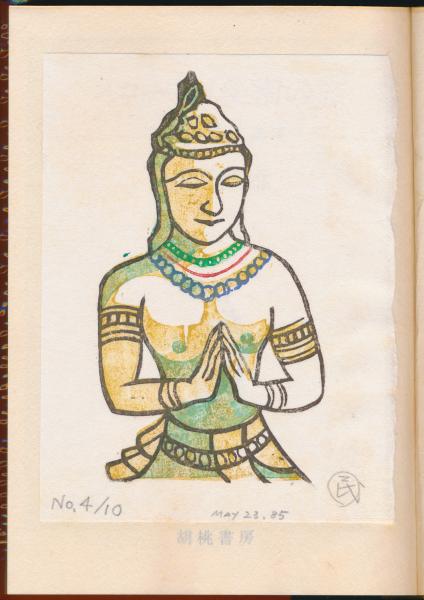 民
No. 4/10
MAY 23. 85
胡桃書房